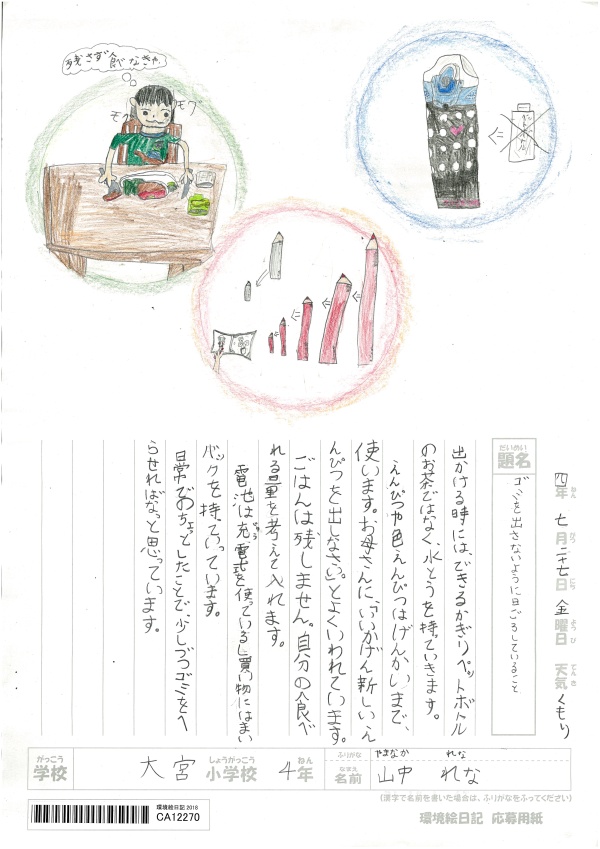 残さず食べなきゃ。
モグ
モグ
四年 七月二十七日 金曜日 天気 くもり
ねん がつ にち ようび てんき
だいめい
題名
ゴミを出さないように日ごろしていること
出かける時には、できるかぎりペットボトル
のお茶ではなく、水とうを持っていきます。
えんぴつや色えんぴつはげんかいまで、
使います。お母さんに、「いいかげん新しいえ
んぴつを出しなさい。」とよくいわれています。
ごはんは残しません。自分の食べ
れる量を考えて入れます。
電池は充電式を使っているし買い物にはまい
じゅう
バックを持っていっています。
日常でのちょっとしたことで、少しづつゴミをへ
らせればなっと思っています。
がっこう
学校
大宮
しょうがっこう
小学校
4
ねん
年
ふりがな
やまなか れな
なまえ
名前
山中 れな
(漢字で名前を書いた場合は、ふりがなをふってください)
環境絵日記 2018
CA12270
環境絵日記 応募用紙